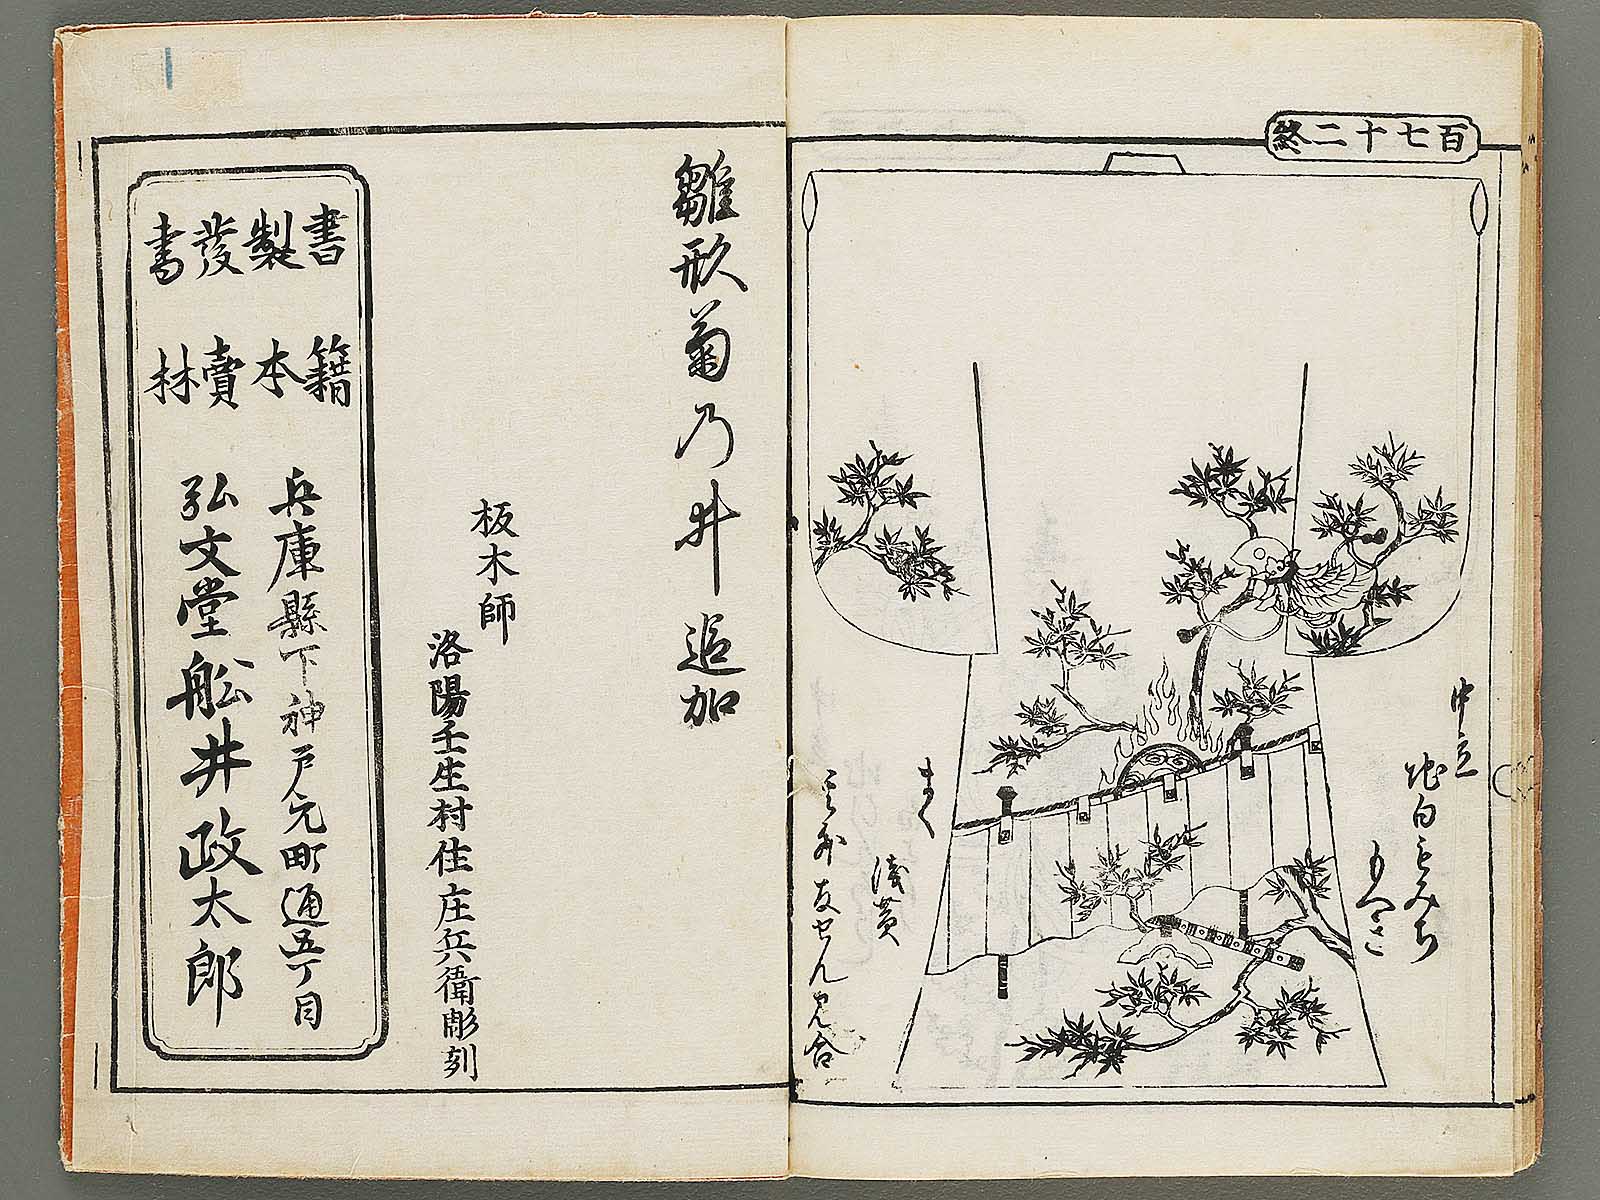 百七十二終
中立
地白もみち
もへき
まく
浅黄
雛形菊乃井追加
板木師
洛陽壬生村住庄兵衛彫刻
書籍
製本
發賣
書林
兵庫縣下神戸元町通五丁目
弘文堂舩井政太郎